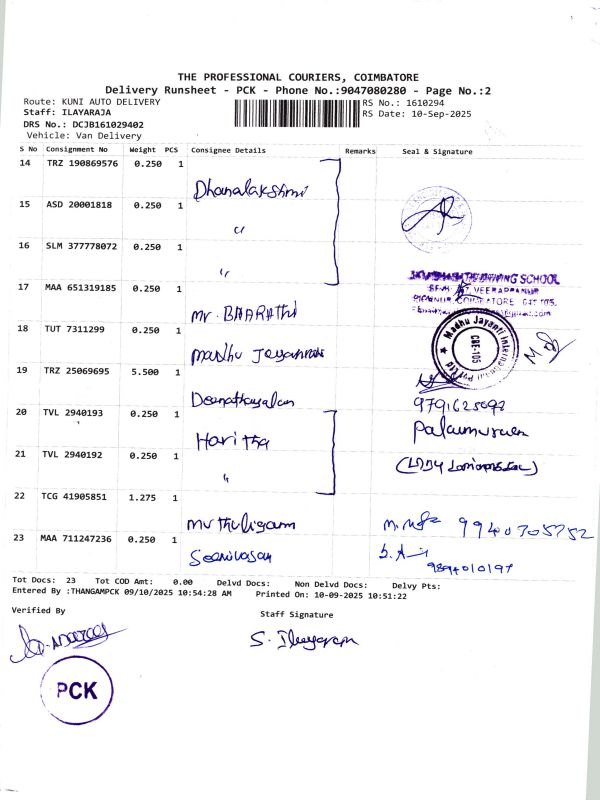 THE PROFESSIONAL COURIERS, COIMBATORE
Delivery Runsheet - PCK - Phone No.:9047080280 - Page No.:2
Route: KUNI AUTO DELIVERY
RS No.: 1610294
Staff: ILAYARAJA
RS Date: 10-Sep-2025
DRS No.: DCJB161029402
Vehicle: Van Delivery
S No Consignment No Weight PCS Consignee Details Remarks Seal & Signature
14 TRZ 190869576 0.250 1 Dhanalakshmi
15 ASD 20001818 0.250 1 "
16 SLM 377778072 0.250 1 "
17 MAA 651319185 0.250 1 Mr. BHARATHI
DRIVING SCHOOL
VEERAPPANUR
COIMBATORE 641 105.
18 TUT 7311299 0.250 1 Madhu Jayanthi
Madhu Jayanti International Pvt Ltd
CBE-105
19 TRZ 25069695 5.500 1 Deenathayalan
9791625098
20 TVL 2940193 0.250 1 Haritha
Palanimurugan
21 TVL 2940192 0.250 1 "
22 TCG 41905851 1.275 1 Muthuligam
9940705752
23 MAA 711247236 0.250 1 Seenivasan
9894010197
Tot Docs: 23 Tot COD Amt: 0.00 Delvd Docs: Non Delvd Docs: Delvy Pts:
Entered By :THANGAMPCK 09/10/2025 10:54:28 AM Printed On: 10-09-2025 10:51:22
Verified By
Staff Signature
S. Ilayaraja
PCK